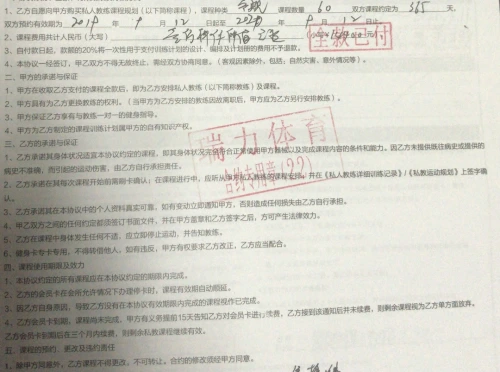 1、乙方自愿向甲方购买私人教练课程规划（以下简称课程），课程种类 课程数量 60 双方课程约定为 365 天，
双方预约有效期为 2019 年 9 月 12 日起至 2020 年 9 月 12 日止
2、课程费用共计人民币（大写） 全款已付
3、自付款日起，款额的20%将一次性用于支付训练计划的设计、编排及计划册的费用不予退款。
4、本协议一经签订，甲乙双方不得无故终止，需经双方协商同意。（客观因素除外，包括，自然灾害，意外情况等）。
二、甲方的承诺与保证
1、甲方在收取乙方支付的课程全款后，即为乙方安排私人教练（以下简称教练）及课程。
2、甲方具有为乙方更换教练的权利。（当甲方为乙方安排的教练因故离职后，甲方应为乙方另行安排教练）。
3、甲方保证乙方享有与教练一对一的健身指导。
4、甲方为乙方制定的课程训练计划属甲方的自有知识产权。
三、乙方的承诺与保证
1、乙方承诺其身体状况适宜本协议约定的课程，即其身体状况 合正常使用 器械以及完成课程内容的条件和能力。因乙方未提供既往病史或提供的
病史不准确，而引起的运动伤害，由乙方自行承担责任。
2、乙方承诺在其每次课程开始前需刷卡确认；在课程进行中，应听从 私人教练的课程安排，并在《私人教练详细训练记录》/《私教运动规划》上签字确
认。
3、乙方承诺其在本协议中的个人资料真实可靠，如有变动立即通知甲方，否则造成任何损失由乙方自行承担。
4、甲乙双方之间的任何约定都须签订书面文件，并在甲方盖章和乙方签字之后，方可产生法律效力。
5、乙方在课程中身体发生任何不适，应立即停止运动，并告知教练。
6、健身卡专卡专用，不得转借他人，如有违反，甲方有权要求乙方改正，乙方应当配合。
四、课程使用期限及效力
1、本协议约定的所有课程应在本协议约定的期限内完成。
2、乙方的会员卡在会所允许情况下办理停卡时，课程有效期自动顺延。
3、因乙方自身原因，导致乙方没有在本协议有效期限内完成的课程视作已完成。
4、乙方会员卡到期，课程尚未完成，甲方有义务提前15天告知乙方对会员卡进行续费，乙方接到该通知后并未续费，则剩余课程视为乙方单方面放弃。
乙方会员卡到期后在三个月内续费，则剩余私教课程继续有效。
五、课程的预约、更改及违约责任
1、除甲方同意外，乙方课程不得更改，不可转让。合约的修改须经甲方同意。
瑞力体育
合约专用章(22)